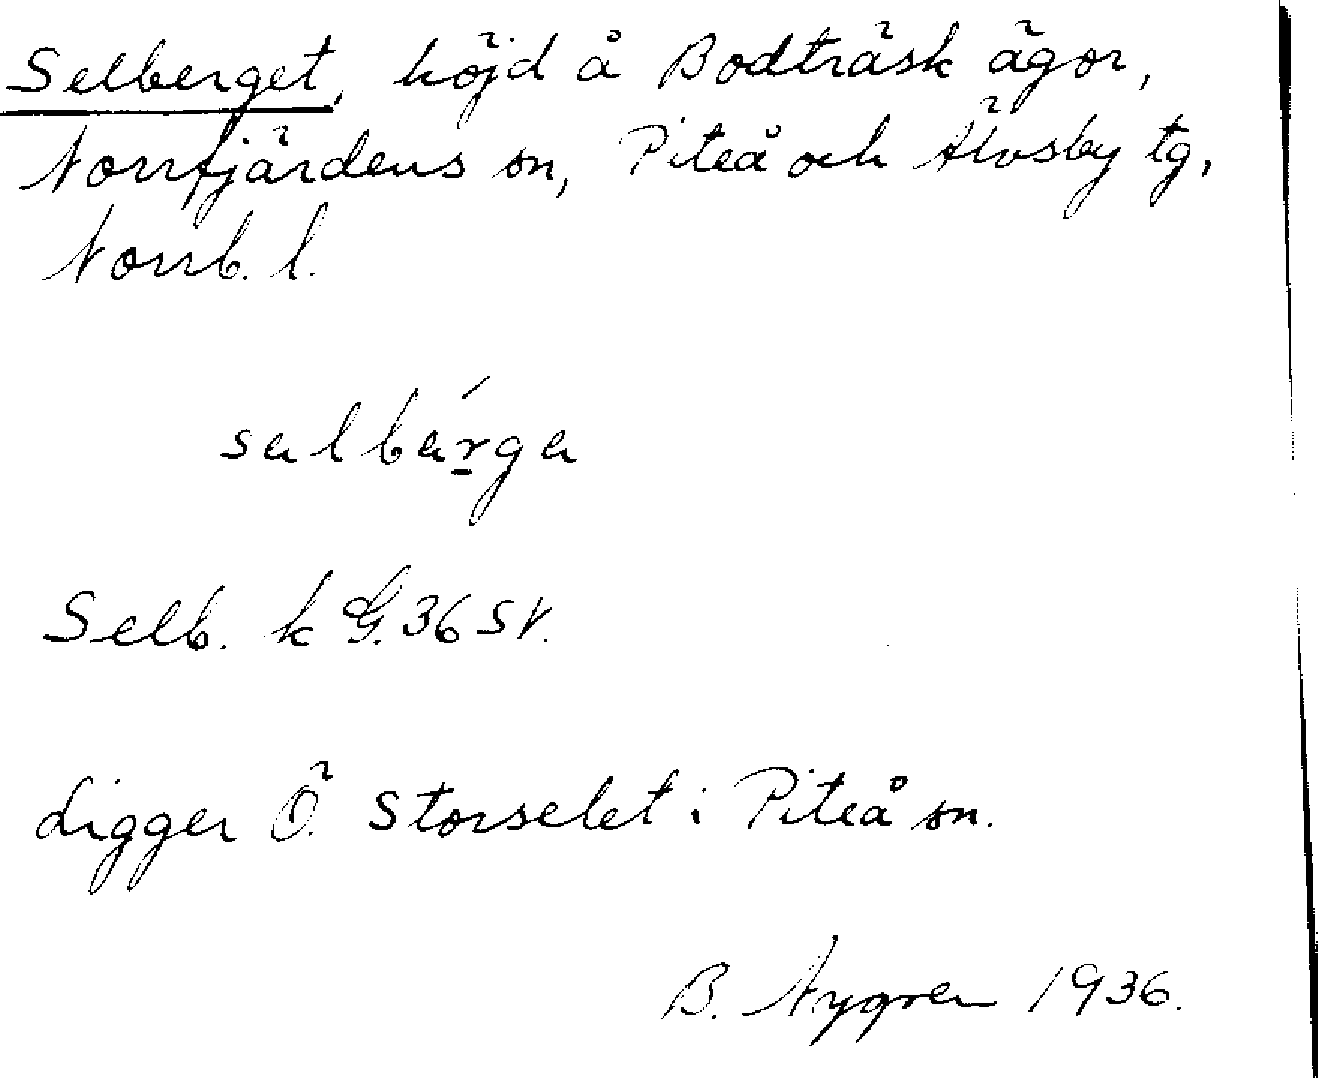 Selberget, höjd å Bodträsk ägor,
Norrfjärdens sn, Piteå och Älvsby tg,
Norrb. l.
Selb. k G. 36 SV.
Ligger Ö. Storselet i Piteå sn.
B. Nygren 1936.